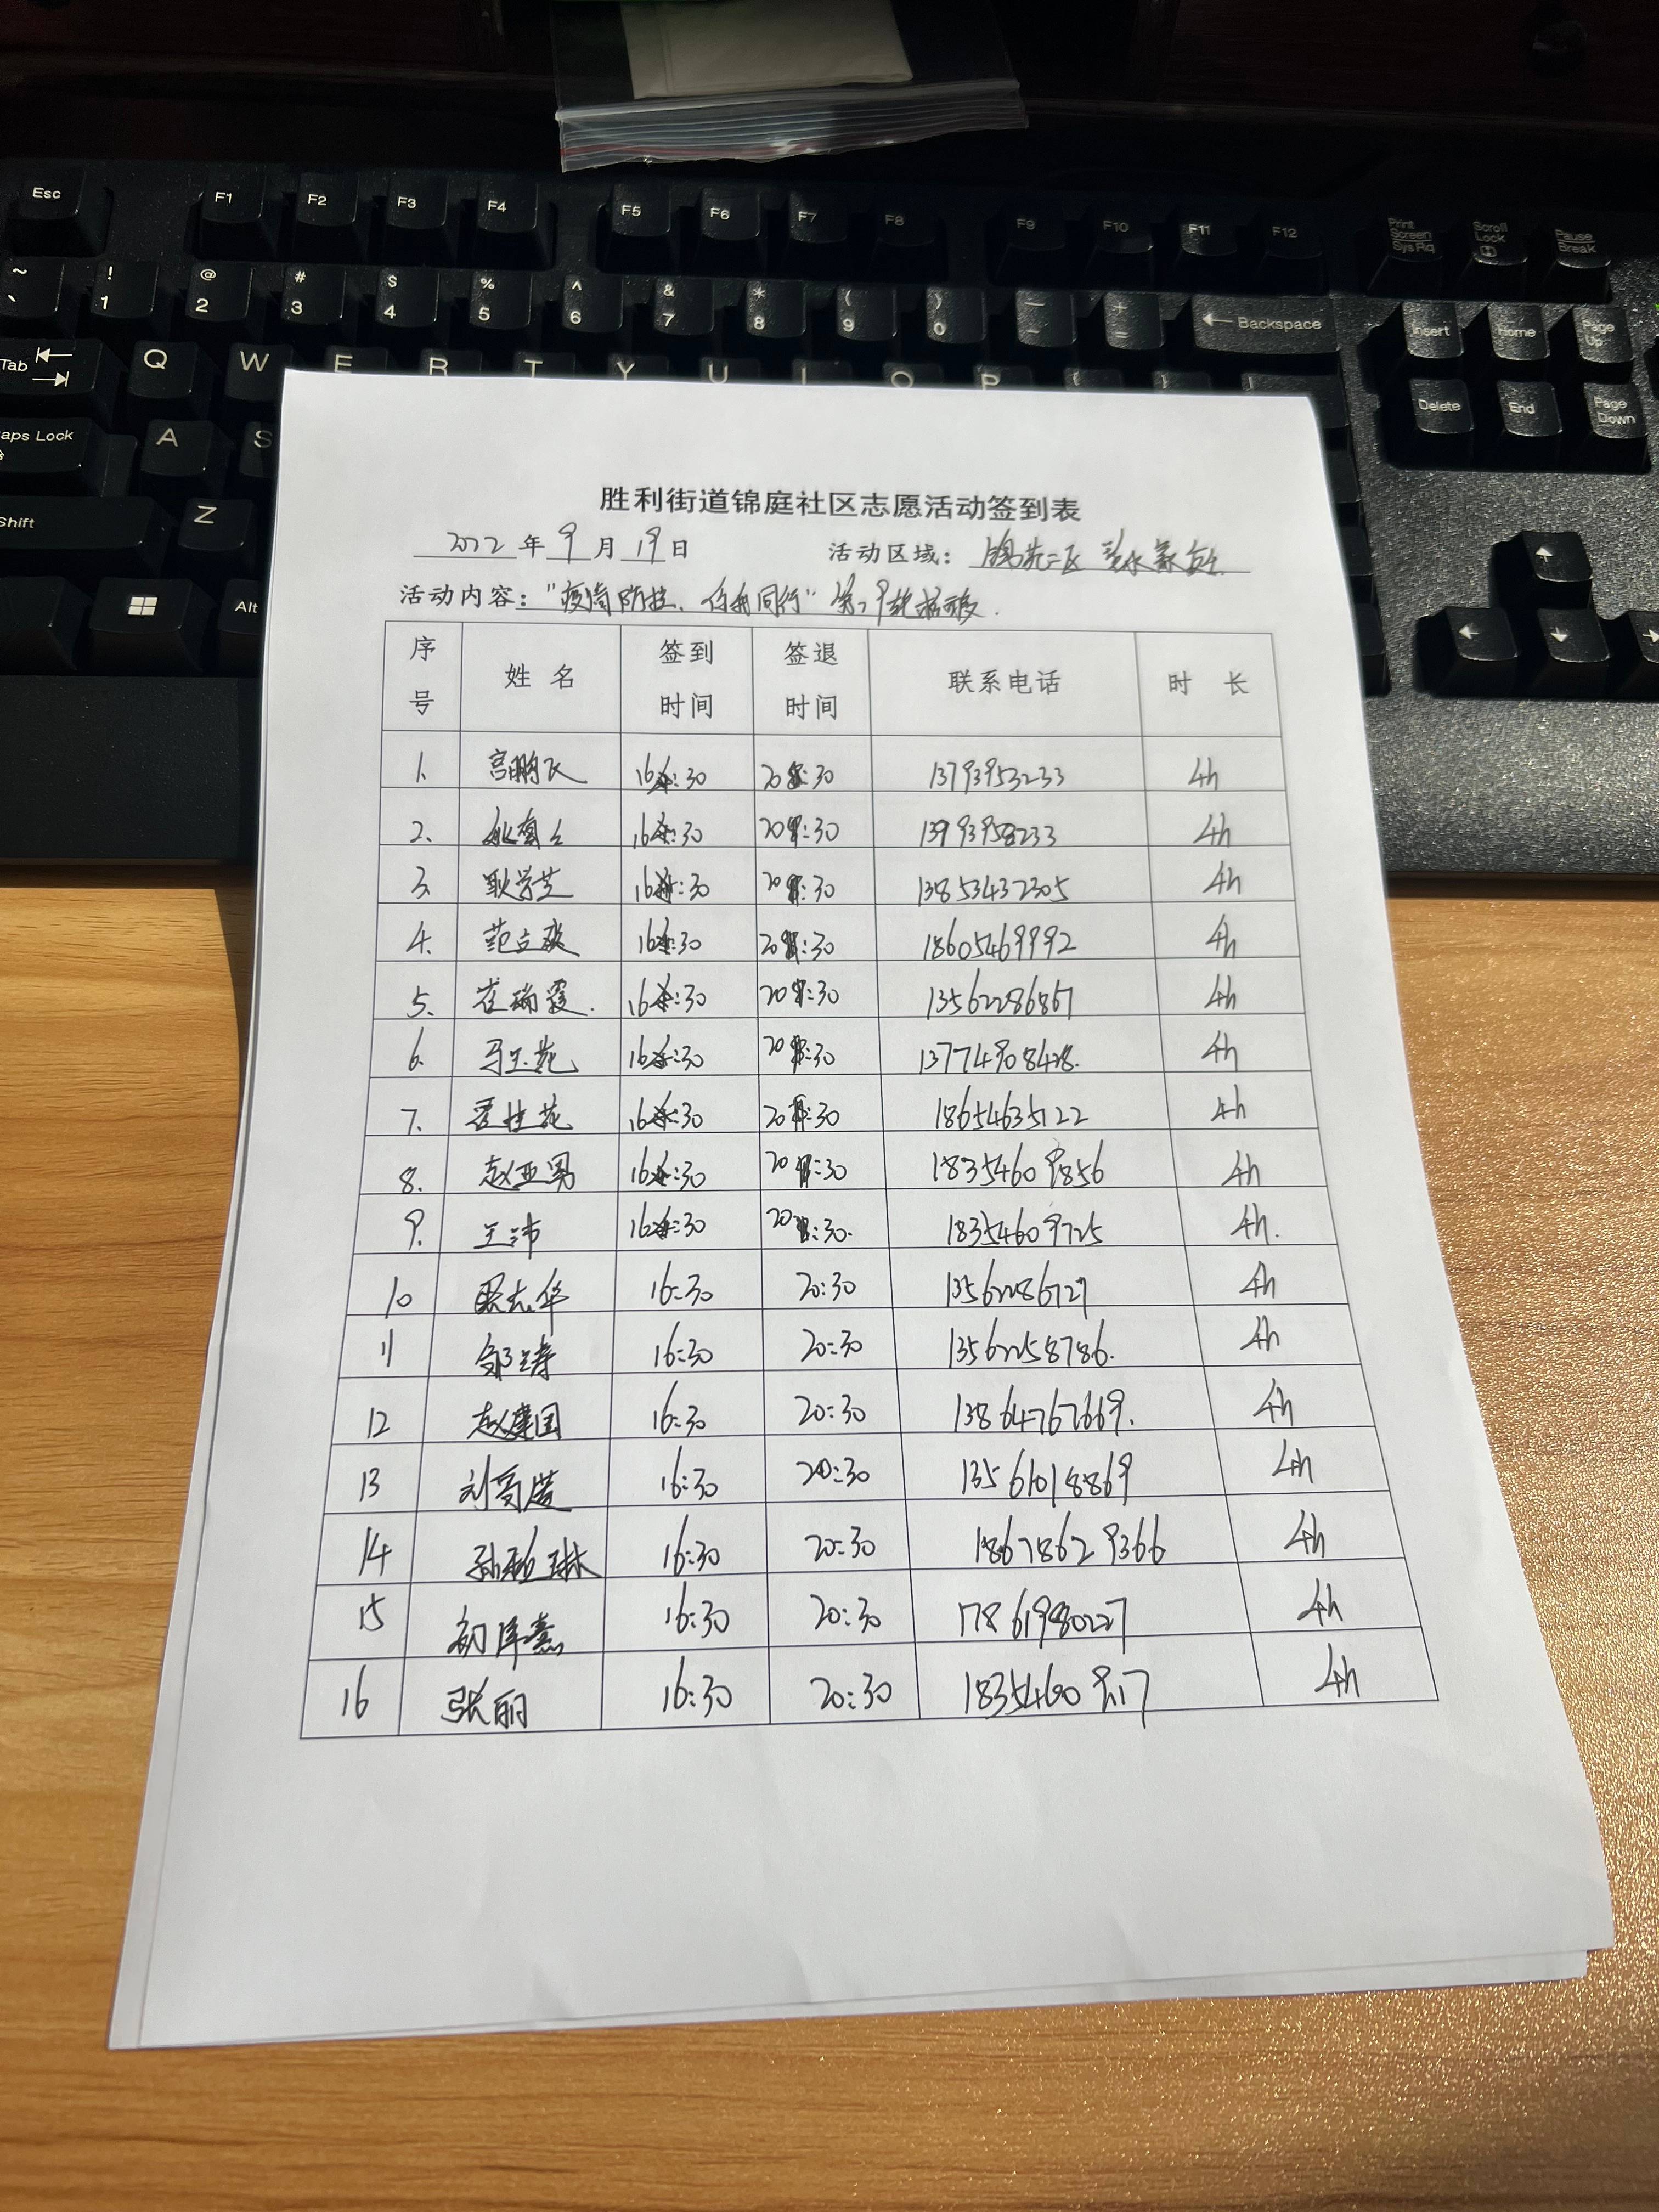 Esc F1 F2 F3 F4 F5 F6 F7 F8 F9 F10 F11 F12 Print Screen SysRq Scroll Lock Pause Break
~ ` ! 1 @ 2 # 3 $ 4 % 5 ^ 6 & 7 * 8 ( 9 ) 0 — - + = ← Backspace Insert Home Page Up
Tab Q W E R T Y U I O P Delete End Page Down
aps Lock A S
Shift Z
Alt
胜利街道锦庭社区志愿活动签到表
2022 年 9 月 19 日 活动区域: 锦苑二区
活动内容: "疫情防控、你我同行"
序号 姓名 签到时间 签退时间 联系电话 时长
1. 宫鹏飞 16:30 20:30 13793953233 4h
2. 16:30 20:30 13993958233 4h
3. 耿学芝 16:30 20:30 13853432305 4h
4. 16:30 20:30 18605469992 4h
5. 崔瑞霞. 16:30 20:30 13562286867 4h
6. 马玉苑 16:30 20:30 4h
7. 桂花 16:30 20:30 18654635122 4h
8. 赵亚男 16:30 20:30 18354609856 4h
9. 王沛 16:30 20:30. 18354609725 4h.
10 志华 16:30 20:30 13562286727 4h
11 邹涛 16:30 20:30 13562258786. 4h
12 赵建国 16:30 20:30 13864767669. 4h
13 刘 16:30 20:30 13561018869 4h
14 孙 琳 16:30 20:30 18678629366 4h
15 16:30 20:30 17861980227 4h
16 张丽 16:30 20:30 4h